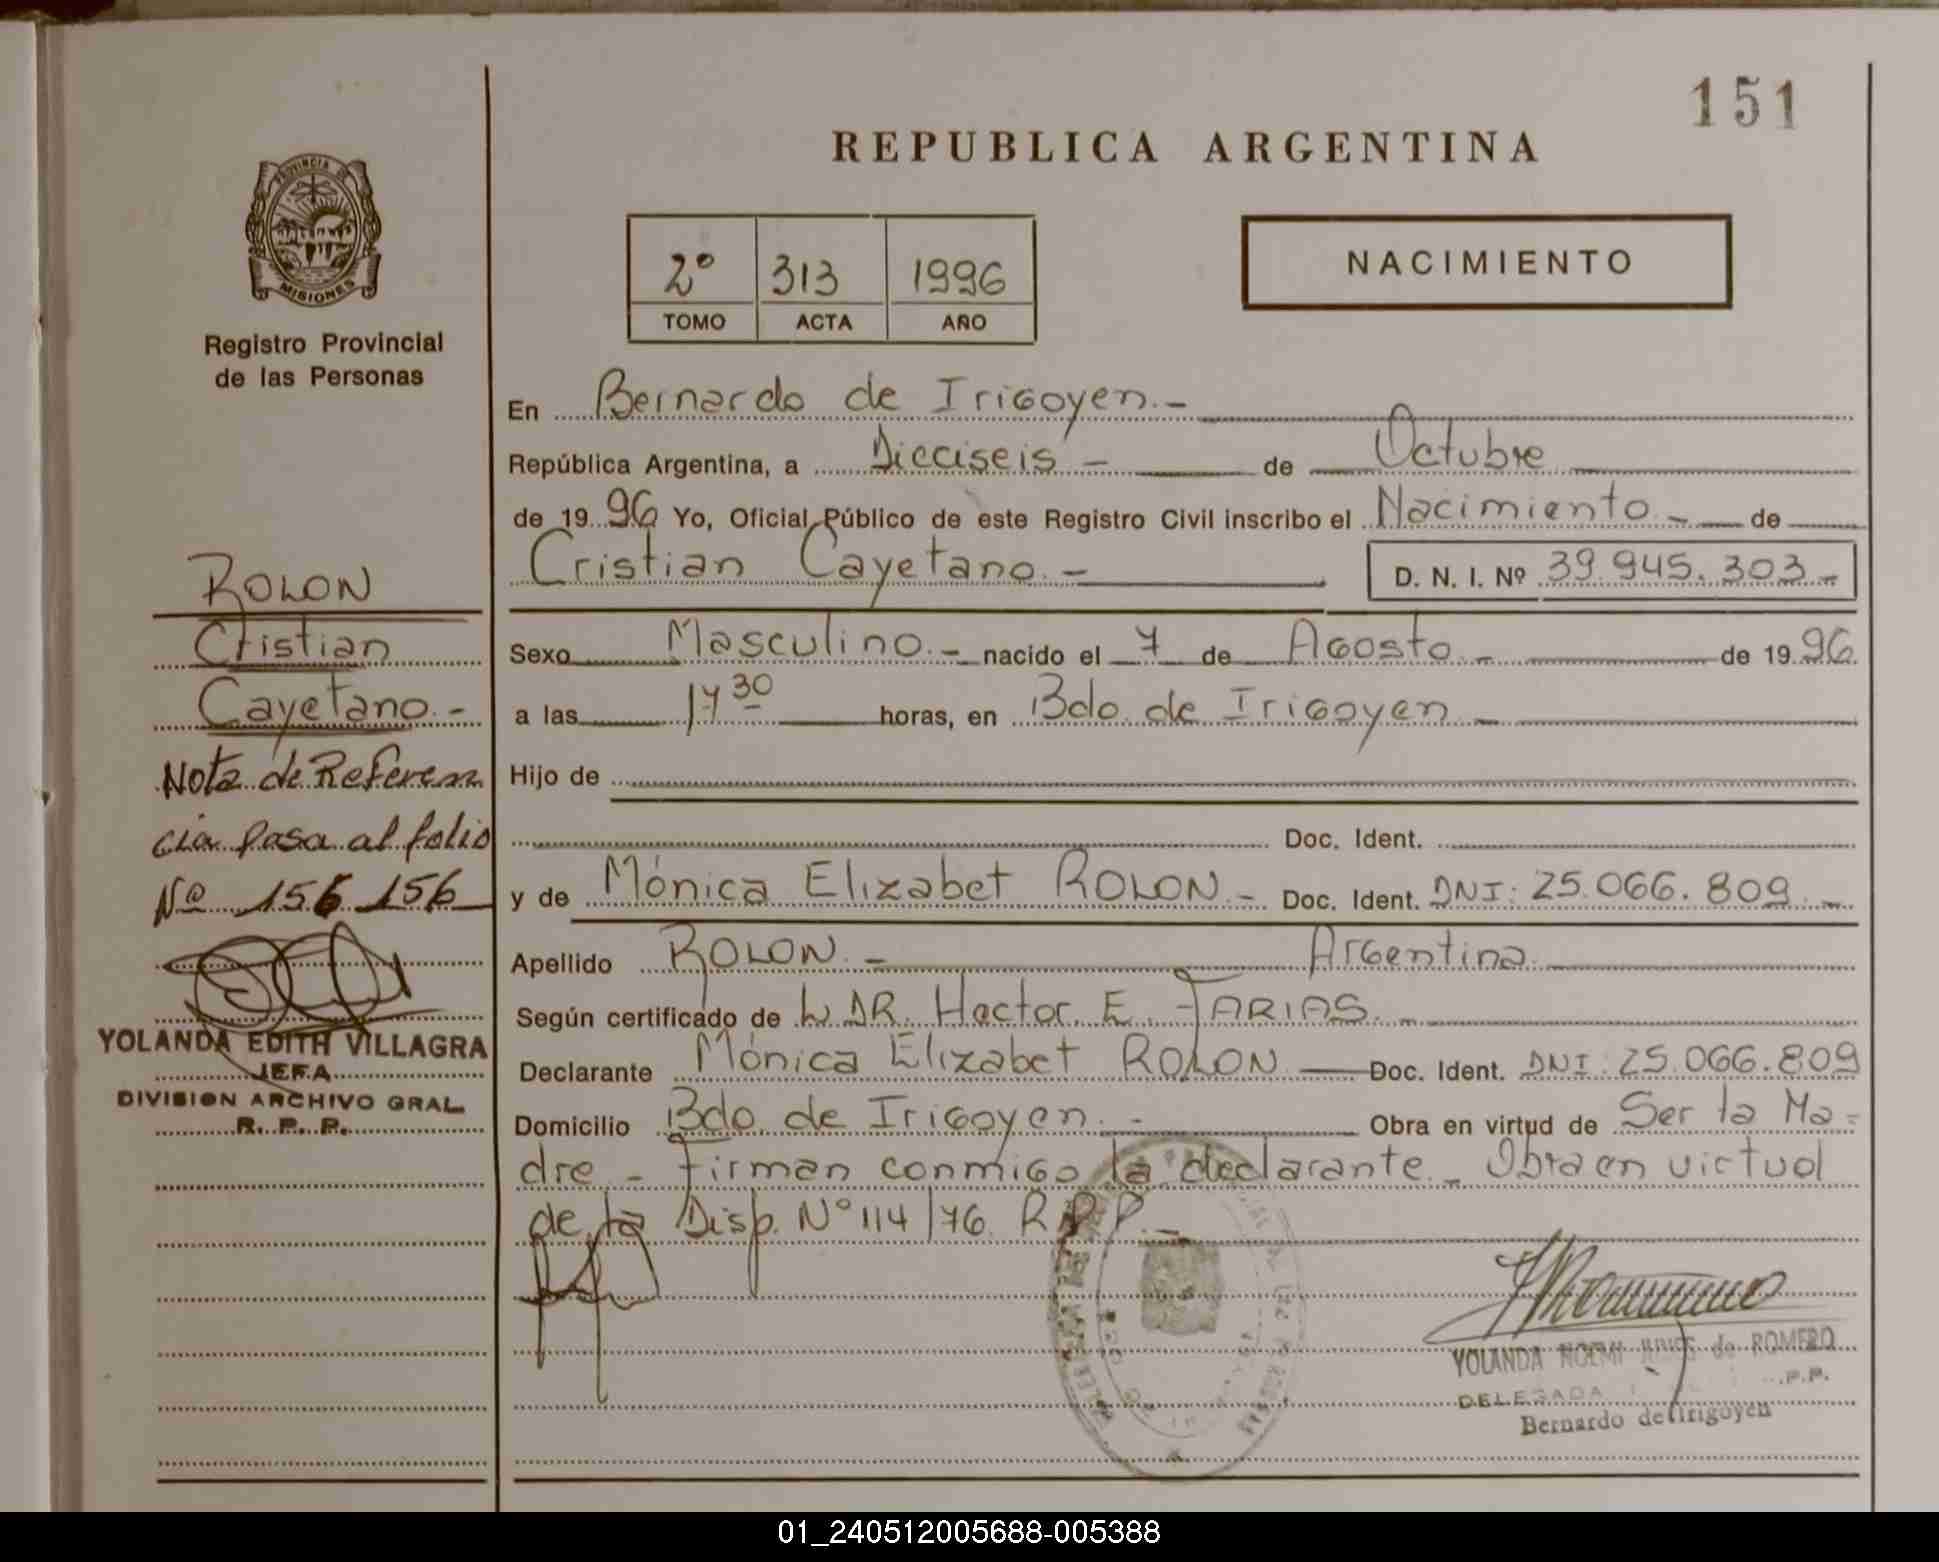 151
REPUBLICA ARGENTINA
PROVINCIA DE
MISIONES
Registro Provincial
de las Personas
2º 313 1996
TOMO ACTA AÑO
NACIMIENTO
En Bernardo de Irigoyen.-
República Argentina, a Dieciseis - de Octubre
de 1996 Yo, Oficial Público de este Registro Civil inscribo el Nacimiento - de
Cristian Cayetano.- D. N. I. Nº 39.945.303-
ROLON
Cristian
Cayetano.-
Nota de Referen
cia pasa al folio
Nº 156 156
YOLANDA EDITH VILLAGRA
JEFA
DIVISION ARCHIVO GRAL.
R. P. P.
Sexo Masculino.- nacido el 7 de Agosto - de 1996
a las 17 30 horas, en Bdo. de Irigoyen -
Hijo de
Doc. Ident.
y de Mónica Elizabet ROLON.- Doc. Ident. DNI: 25.066.809.-
Apellido ROLON.- Argentina.
Según certificado de DR. Hector E. FARIAS.-
Declarante Mónica Elizabet ROLON Doc. Ident. DNI: 25.066.809
Domicilio Bdo. de Irigoyen.- Obra en virtud de Ser la Ma=
dre - Firman conmigo la declarante - Obra en victud
de la Disp. Nº 114/76. R.P.P.-
YOLANDA NOEMI de ROMERO
DELEGADA P.P.
Bernardo de Irigoyen
01_240512005688-005388